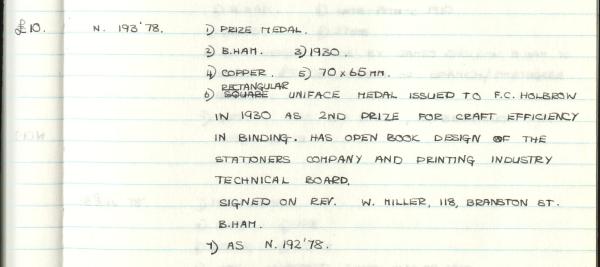 £10. N. 193'78. 1) PRIZE MEDAL.
2) B.HAM. 3) 1930.
4) COPPER. 5) 70 x 65 MM.
RECTANGULAR
6) SQUARE UNIFACE MEDAL ISSUED TO F.C. HOLBROW
IN 1930 AS 2ND PRIZE FOR CRAFT EFFICIENCY
IN BINDING. HAS OPEN BOOK DESIGN OF THE
STATIONERS COMPANY AND PRINTING INDUSTRY
TECHNICAL BOARD.
SIGNED ON REV. W. MILLER, 118, BRANSTON ST.
B.HAM.
7) AS N. 192'78.